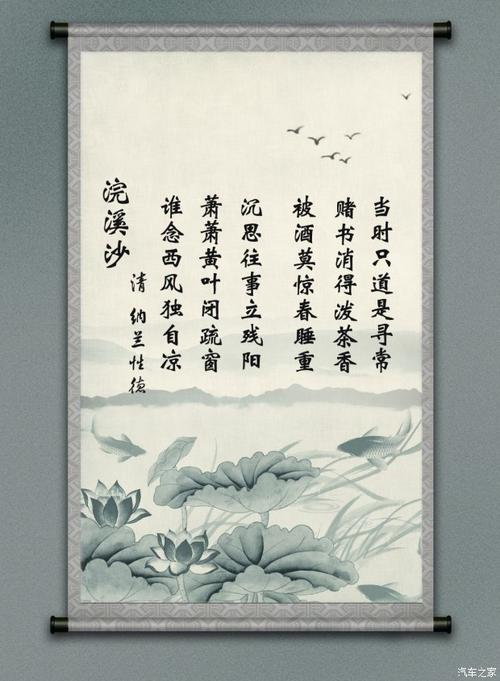 浣溪沙
清 纳兰性德
谁念西风独自凉
萧萧黄叶闭疏窗
沉思往事立残阳
被酒莫惊春睡重
赌书消得泼茶香
当时只道是寻常
汽车之家